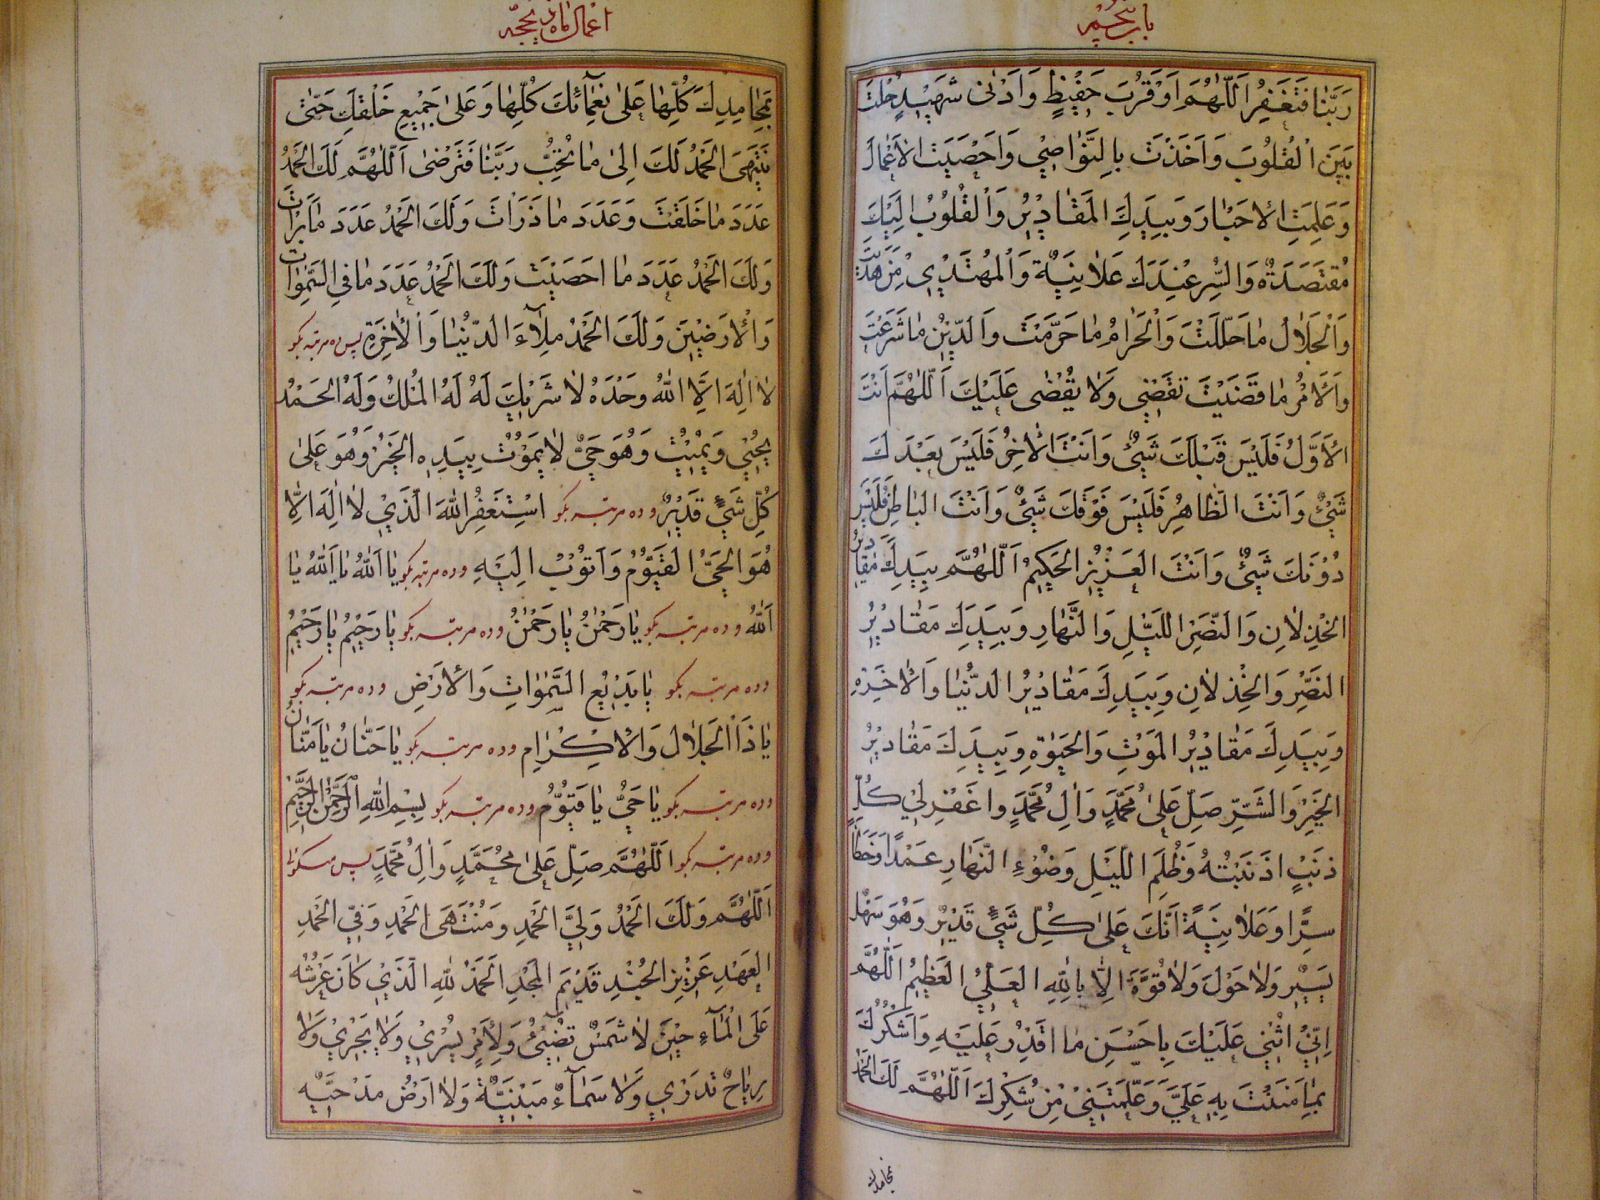 باب پنجم
رَبَّنَا فَتَغْفِرُ اَللّٰهُمَّ اَوْ قَرُبَ حَفِيظٍ وَ اَدْنىٰ شَهِيدٍ حُلْتَ
بَيْنَ الْقُلُوبِ وَ اَخَذْتَ بِالنَّوٰاصِي وَ اَحْصَيْتَ الْاَعْمٰالَ
وَ عَلِمْتَ الْاَخْبٰارَ وَ بِيَدِكَ الْمَقٰادِيرُ وَ الْقُلُوبُ اِلَيْكَ
مُقْتَصَدَةٌ وَ السِّرُّ عِنْدَكَ عَلٰانِيَةٌ وَ الْمُهْتَدِي مَنْ هَدَيْتَ
وَ الْحَلٰالُ مٰا حَلَّلْتَ وَ الْحَرٰامُ مٰا حَرَّمْتَ وَ الدِّينُ مٰا شَرَعْتَ
وَ الْاَمْرُ مٰا قَضَيْتَ تَقْضِي وَ لٰا يُقْضىٰ عَلَيْكَ اَللّٰهُمَّ اَنْتَ
الْاَوَّلُ فَلَيْسَ قَبْلَكَ شَيْءٌ وَ اَنْتَ الْاٰخِرُ فَلَيْسَ بَعْدَكَ
شَيْءٌ وَ اَنْتَ الظّٰاهِرُ فَلَيْسَ فَوْقَكَ شَيْءٌ وَ اَنْتَ الْبٰاطِنُ فَلَيْسَ
دُونَكَ شَيْءٌ وَ اَنْتَ الْعَزِيزُ الْحَكِيمُ اَللّٰهُمَّ بِيَدِكَ مَقٰادِيرُ
الْخِذْلٰانِ وَ النَّصْرِ اللَّيْلِ وَ النَّهٰارِ وَ بِيَدِكَ مَقٰادِيرُ
النَّصْرِ وَ الْخِذْلٰانِ وَ بِيَدِكَ مَقٰادِيرُ الدُّنْيٰا وَ الْاٰخِرَةِ
وَ بِيَدِكَ مَقٰادِيرُ الْمَوْتِ وَ الْحَيٰوةِ وَ بِيَدِكَ مَقٰادِيرُ
الْخَيْرِ وَ الشَّرِّ صَلِّ عَلىٰ مُحَمَّدٍ وَ اٰلِ مُحَمَّدٍ وَ اغْفِرْ لِي كُلَّ
ذَنْبٍ اَذْنَبْتُهُ وَ ظُلَمِ اللَّيْلِ وَ ضَوْءِ النَّهٰارِ عَمْدًا وَ خَطَأً
سِرًّا وَ عَلٰانِيَةً اِنَّكَ عَلىٰ كُلِّ شَيْءٍ قَدِيرٌ وَ هُوَ سَهْلٌ
يَسِيرٌ وَ لٰا حَوْلَ وَ لٰا قُوَّةَ اِلّٰا بِاللّٰهِ الْعَلِيِّ الْعَظِيمِ اَللّٰهُمَّ
اِنِّي اُثْنِي عَلَيْكَ بِاَحْسَنِ مٰا اَقْدِرُ عَلَيْهِ وَ اَشْكُرُكَ
بِمٰا مَنَنْتَ بِهِ عَلَيَّ وَ عَلَّمْتَنِي مِنْ شُكْرِكَ اَللّٰهُمَّ لَكَ الْحَمْدُ
بمحامدك
اعمال ماه ذیحجه
بِمَحٰامِدِكَ كُلِّهٰا عَلىٰ نَعْمٰائِكَ كُلِّهٰا وَ عَلىٰ جَمِيعِ خَلْقِكَ حَتّٰى
يَنْتَهِيَ الْحَمْدُ لَكَ اِلىٰ مٰا تُحِبُّ رَبَّنٰا فَتَرْضىٰ اَللّٰهُمَّ لَكَ الْحَمْدُ
عَدَدَ مٰا خَلَقْتَ وَ عَدَدَ مٰا ذَرَأْتَ وَ لَكَ الْحَمْدُ عَدَدَ مٰا بَرَأْتَ
وَ لَكَ الْحَمْدُ عَدَدَ مٰا اَحْصَيْتَ وَ لَكَ الْحَمْدُ عَدَدَ مٰا فِي السَّمٰوٰاتِ
وَ الْاَرَضِينَ وَ لَكَ الْحَمْدُ مِلْءَ الدُّنْيٰا وَ الْاٰخِرَةِ پس ده مرتبه بكو
لٰا اِلٰهَ اِلَّا اللّٰهُ وَحْدَهُ لٰا شَرِيكَ لَهُ لَهُ الْمُلْكُ وَ لَهُ الْحَمْدُ
يُحْيِي وَ يُمِيتُ وَ هُوَ حَيٌّ لٰا يَمُوتُ بِيَدِهِ الْخَيْرُ وَ هُوَ عَلىٰ
كُلِّ شَيْءٍ قَدِيرٌ و ده مرتبه بكو اَسْتَغْفِرُ اللّٰهَ الَّذِي لٰا اِلٰهَ اِلّٰا
هُوَ الْحَيُّ الْقَيُّومُ وَ اَتُوبُ اِلَيْهِ و ده مرتبه بكو يٰا اَللّٰهُ يٰا اَللّٰهُ يٰا
اَللّٰهُ و ده مرتبه بكو يٰا رَحْمٰنُ يٰا رَحْمٰنُ و ده مرتبه بكو يٰا رَحِيمُ يٰا رَحِيمُ
و ده مرتبه بكو يٰا بَدِيعَ السَّمٰوٰاتِ وَ الْاَرْضِ و ده مرتبه بكو
يٰا ذَا الْجَلٰالِ وَ الْاِكْرٰامِ و ده مرتبه بكو يٰا حَنّٰانُ يٰا مَنّٰانُ
و ده مرتبه بكو يٰا حَيُّ يٰا قَيُّومُ و ده مرتبه بكو بِسْمِ اللّٰهِ الرَّحْمٰنِ الرَّحِيمِ
و ده مرتبه بكو اَللّٰهُمَّ صَلِّ عَلىٰ مُحَمَّدٍ وَ اٰلِ مُحَمَّدٍ پس میكوئی
اَللّٰهُمَّ وَ لَكَ الْحَمْدُ وَلِيَّ الْحَمْدِ وَ مُنْتَهَى الْحَمْدِ وَفِيَّ الْحَمْدِ
الْعَهْدِ عَزِيزَ الْجُنْدِ قَدِيمَ الْمَجْدِ اَلْحَمْدُ لِلّٰهِ الَّذِي كٰانَ عَرْشُهُ
عَلَى الْمٰاءِ حِينَ لٰا شَمْسٌ تُضِيءُ وَ لٰا قَمَرٌ يَسْرِي وَ لٰا بَحْرٌ يَجْرِي وَ لٰا
رِيٰاحٌ تَذْرِي وَ لٰا سَمٰاءٌ مَبْنِيَّةٌ وَ لٰا اَرْضٌ مَدْحِيَّةٌ